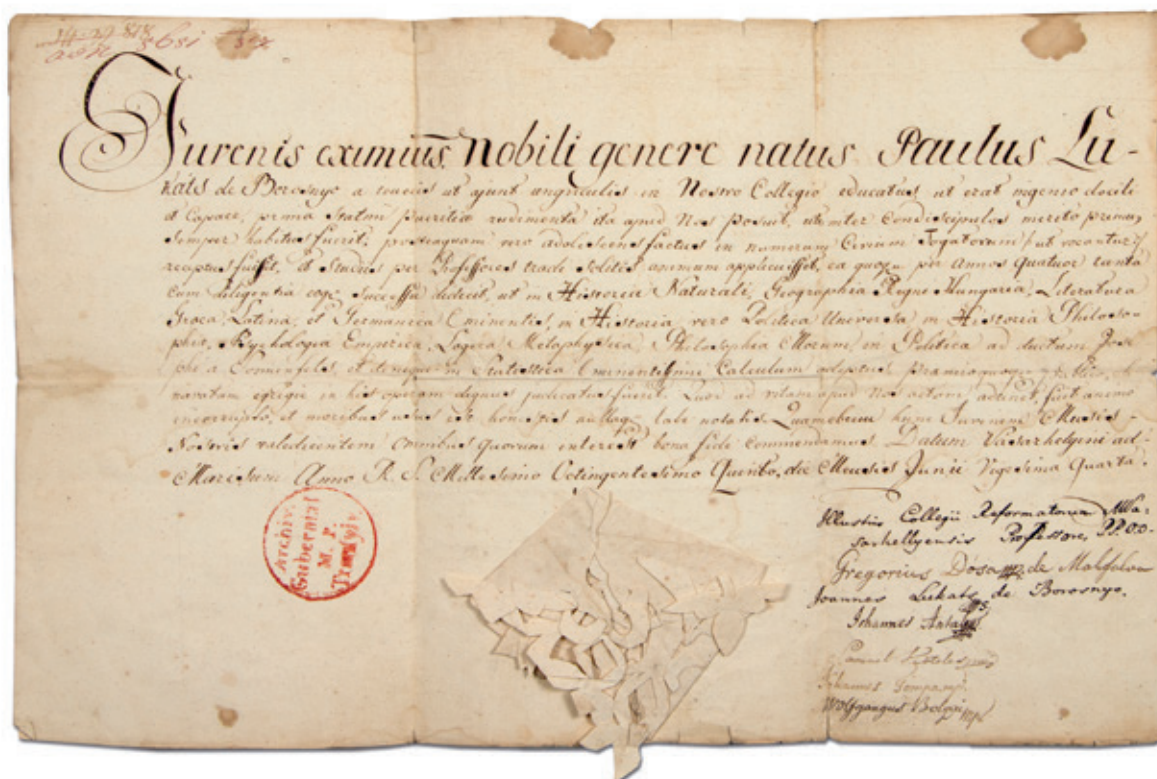 1893
Juvenis eximius, Nobili genere natus Paulus Lu-
káts de Borosnyo a teneris ut ajunt unguiculis in Nostro Collegio educatus ut erat ingenio docili
et Capace, prima statim pueritiæ rudimenta ita apud Nos posuit, ut inter Condiscipulos merito primus
semper habitus fuerit; posteaquam vero adolescens factus in numerum Civium Togatorum /: ut vocantur :/
receptus fuisset, et studiis per Professores tradi solitis animum applicuisset, ea quoque per Annos quatuor tanta
cum diligentia eoque successu didicit, ut in Historia Naturali, Geographia Regni Hungariæ, Literatura
Græca, Latina, et Germanica Eminentis, in Historia vero Politica Universa in Historia Philoso-
phiæ, Psychologia Empirica, Logica Metaphysica, Philosophia Morum in Politica ad ductum Jose
phi a Sonnenfels et denique in Statistica Eminentissimi Calculum adeptus præmioque
navatam egregie in his operam dignus judicatus fuerit. Quod ad vitam apud Nos actam adtinet, fuit animo
incorrupto, et moribus usus est honestis nullaque labe notatis. Quamobrem hunc Juvenem Musis
Nostris valedicentem Omnibus quorum interest bona fide commendamus. Datum Vásárhelyini ad
Marisum Anno R. S. Millesimo Octingentesimo Quinto, die Mensis Junii Vigesima Quarta.
Archiv.
Gubernial
M. P.
Transylv.
Illustris Collegii Reformatorum M Va-
sarhellyensis Professores, P.P. O.O.
Gregorius Dósa de Makfalva
Joannes Lukáts de Borosnyo.
Johannes Antal
Samuel
Johannes
Wolfgangus Bolyai mpr